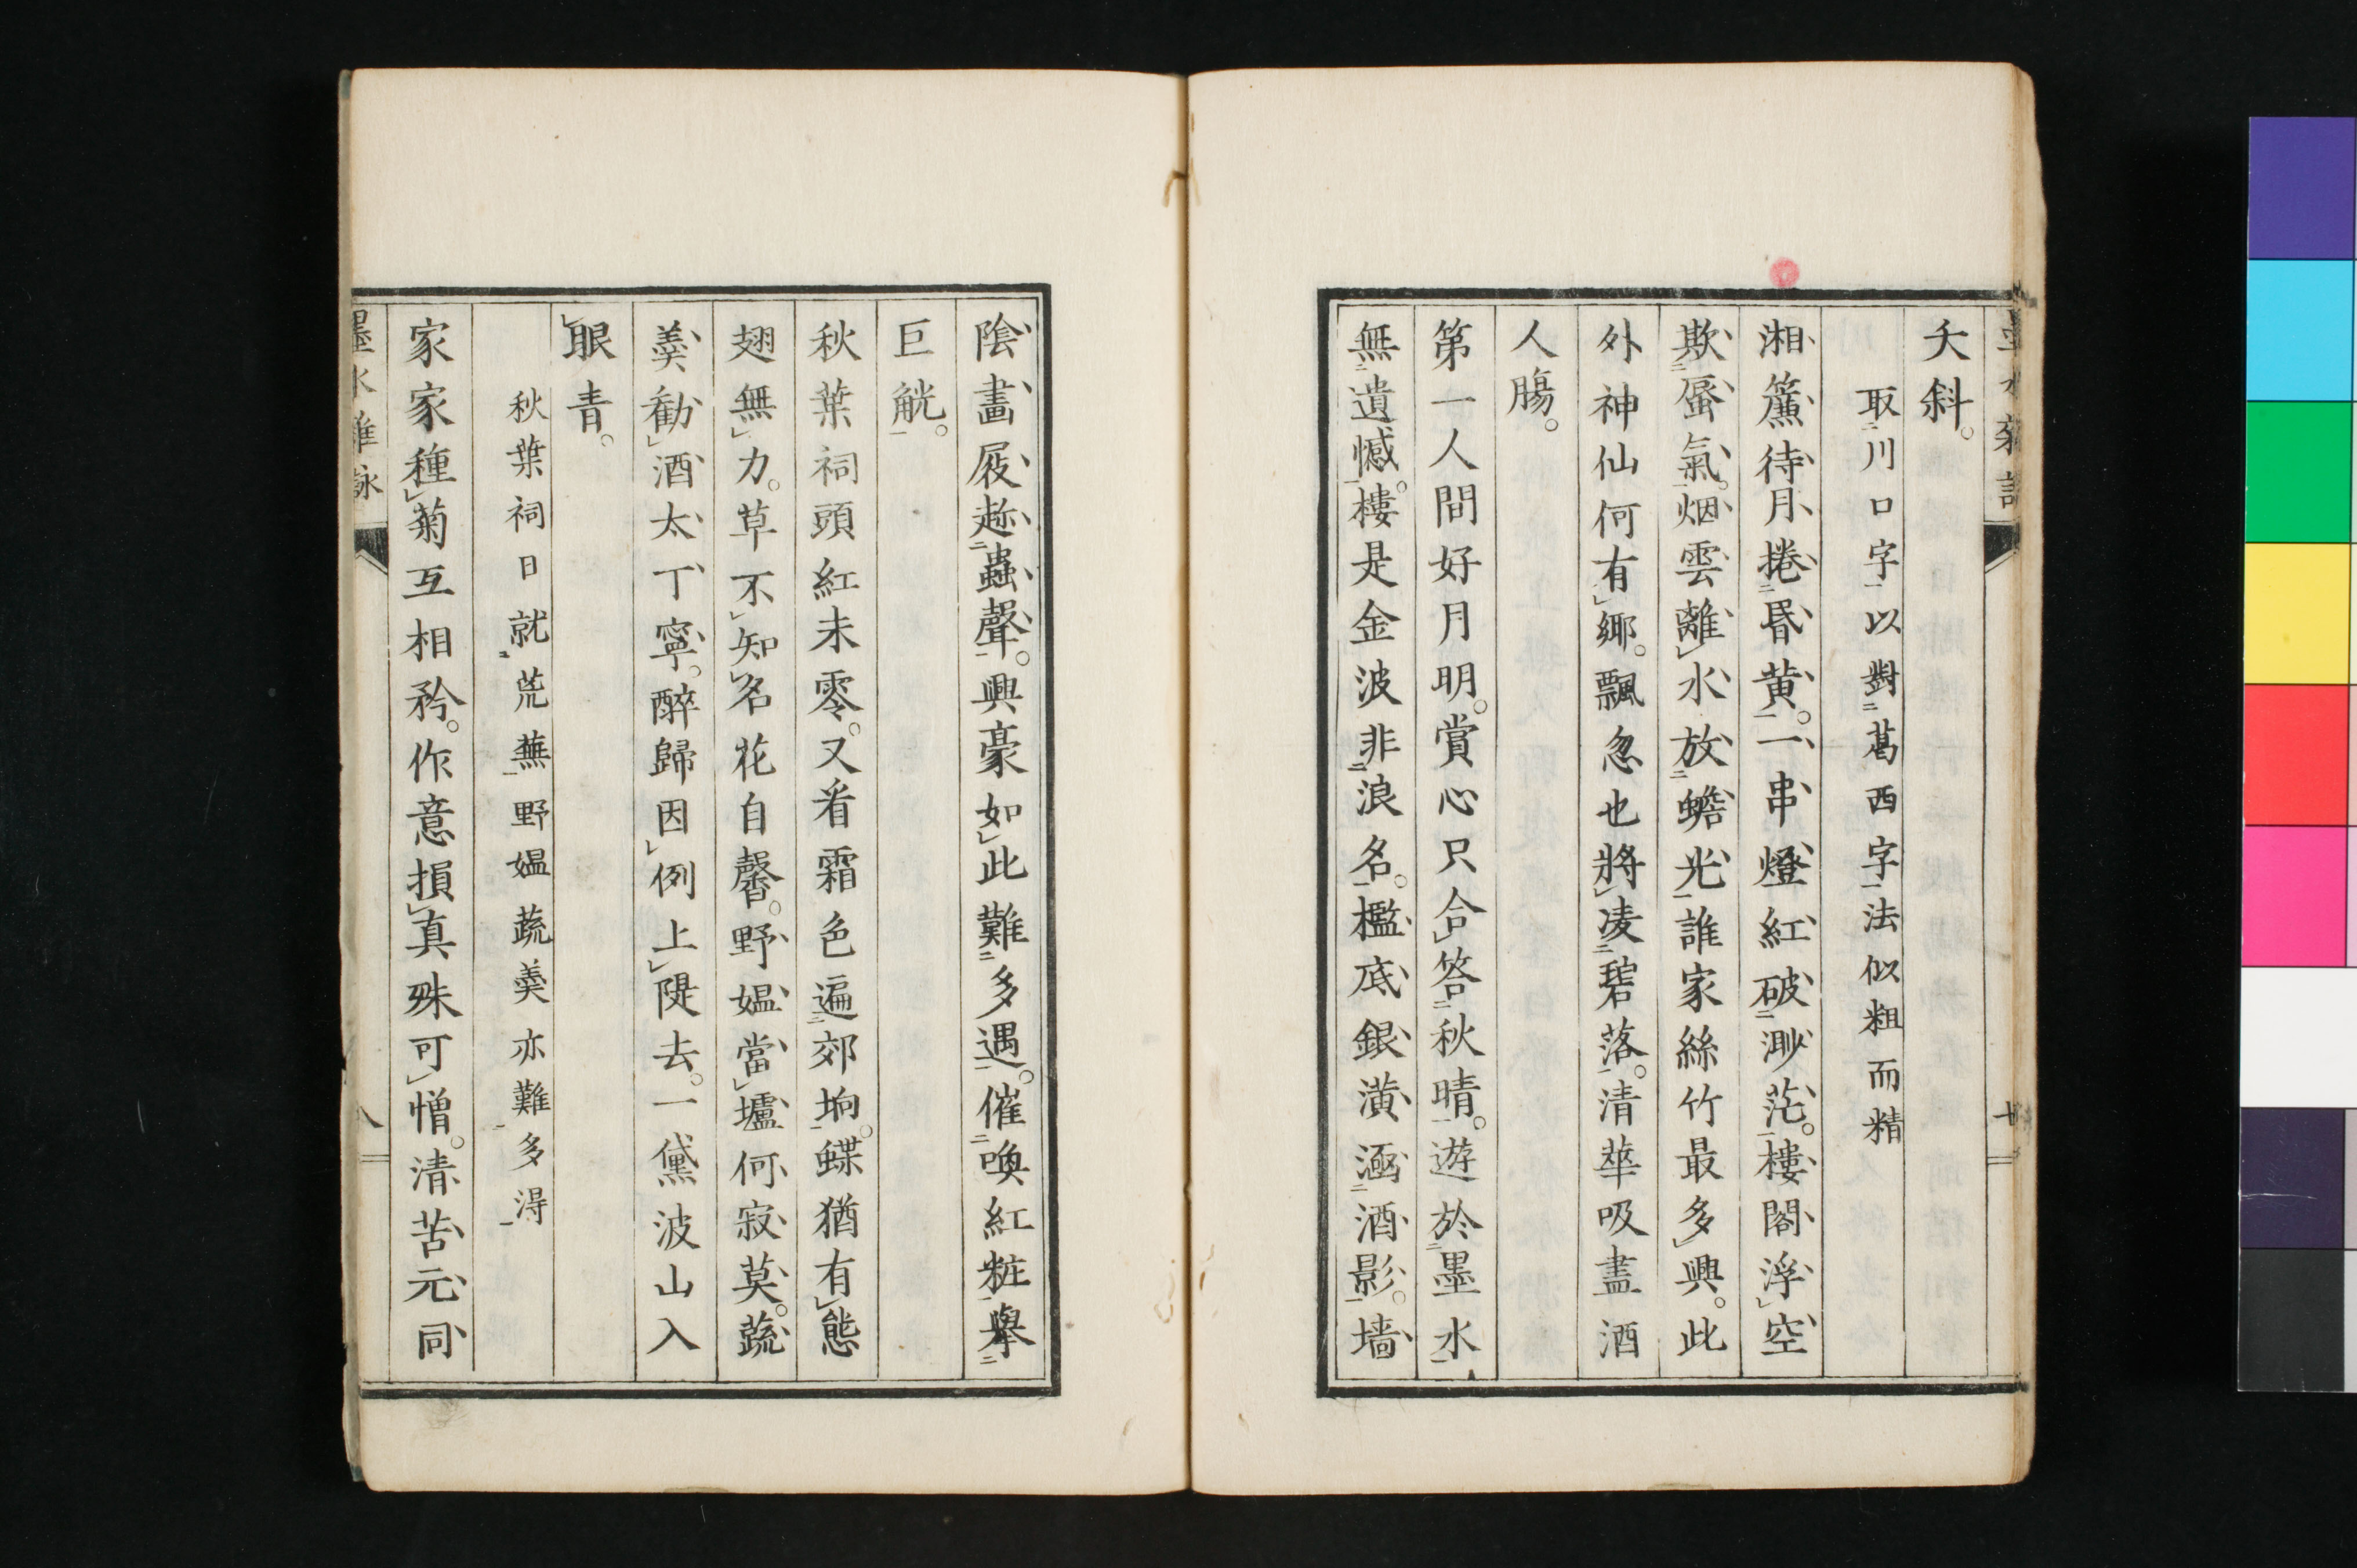 夭斜。
取川口字以對葛西字法似粗而精
湘簾待月捲昏黄。一串燈紅破渺茫。樓閣浮空
欺蜃氣。烟雲離水放蟾光。誰家絲竹最多興。此
外神仙何有鄉。飄忽也將凌碧落。清華吸盡酒
人膓。
第一人間好月明。賞心只合答秋晴。遊於墨水
無遺憾。樓是金波非浪名。檻底銀潢涵酒影。墻
陰畵屐趂蟲聲。興豪如此難多遇。催喚紅粧舉
巨觥。
秋葉祠頭紅未零。又看霜色遍郊坰。蝶猶有態
翅無力。草不知名花自馨。野媼當壚何寂莫。蔬
羹勸酒太丁寧。醉歸因例上隄去。一黛波山入
眼青。
秋葉祠日就荒蕪野媼蔬羹亦難多淂
家家種菊互相矜。作意損真殊可憎。清苦元同
墨水雜詠
八